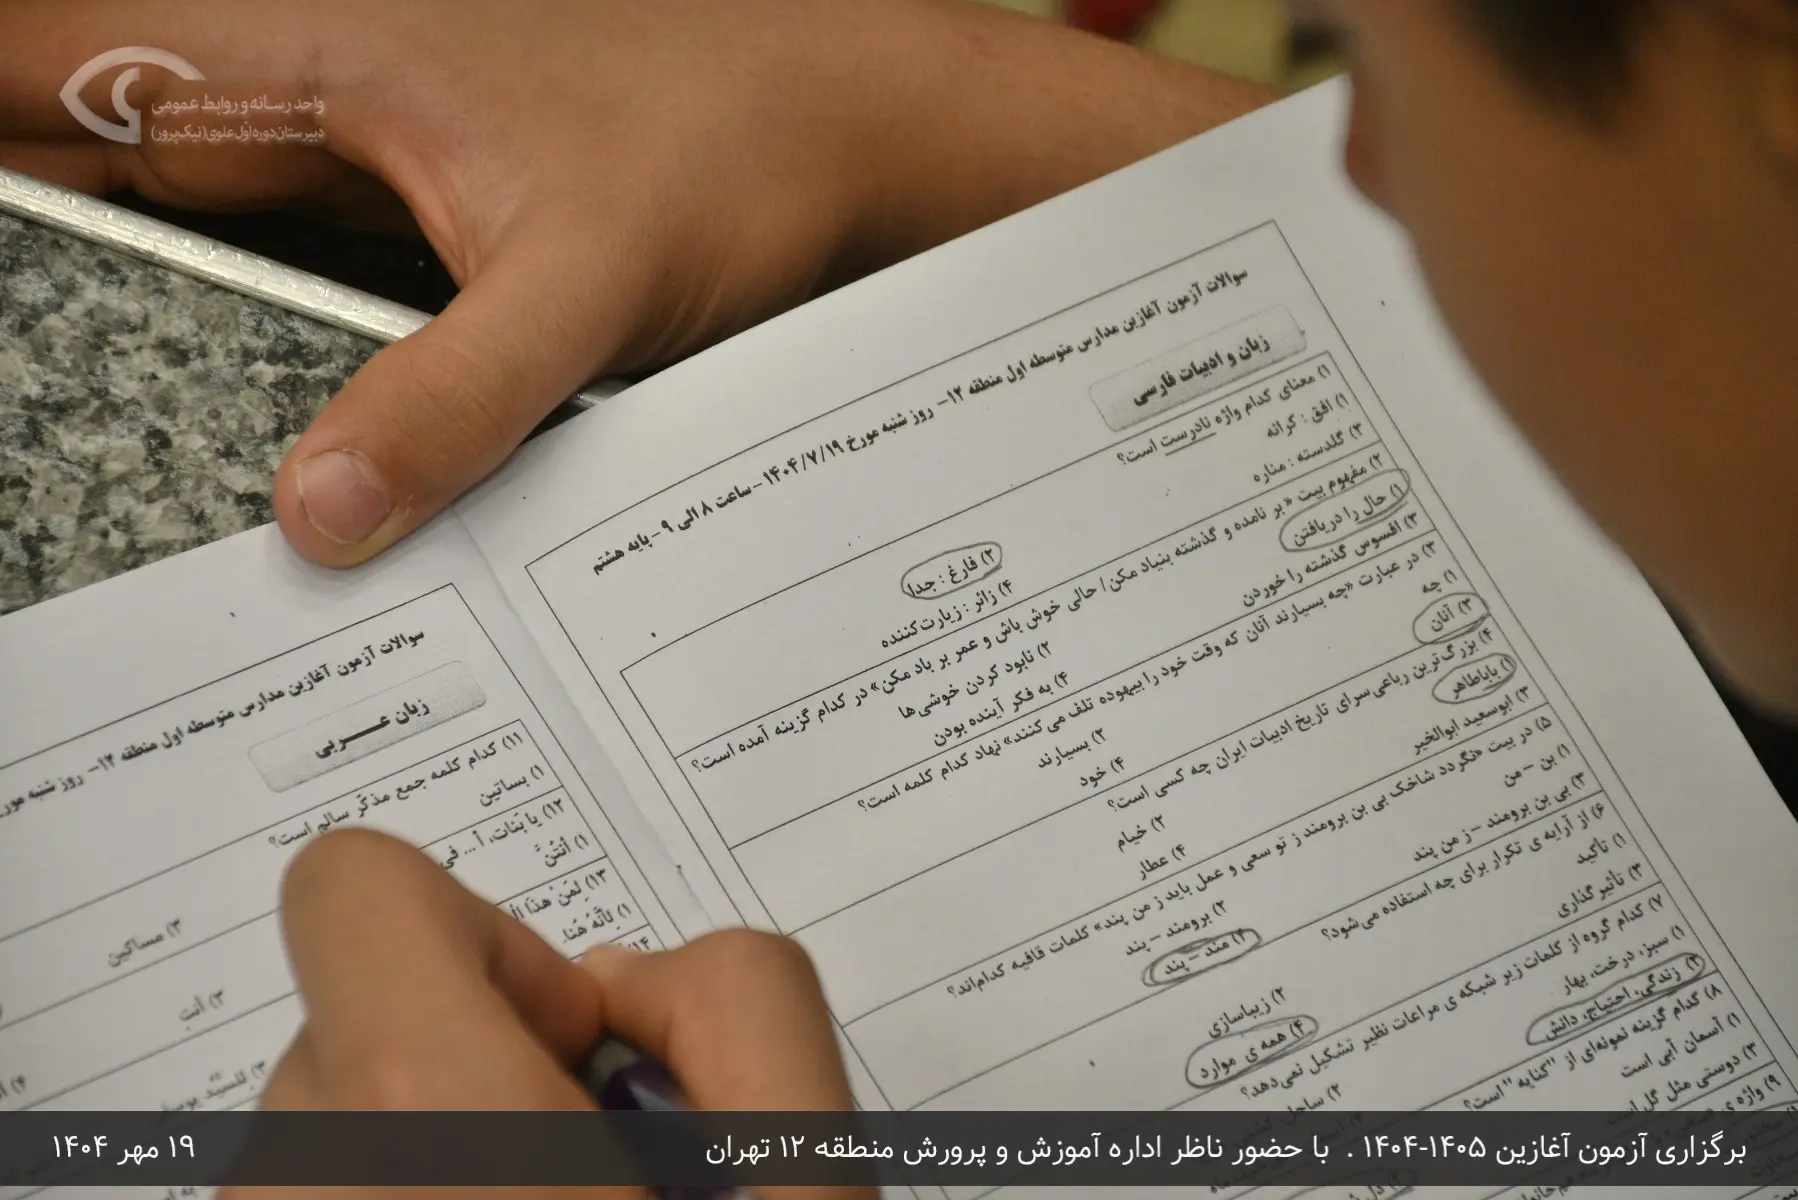 واحد رسانه و روابط عمومی
دبیرستان دوره اول علوی (نیک‌پرور)
سوالات آزمون آغازین مدارس متوسطه اول منطقه ۱۲- روز شنبه مورخ ۱۴۰۴/۷/۱۹ - ساعت ۸ الی ۹ - پایه هشتم
زبان و ادبیات فارسی
۱) معنای کدام واژه نادرست است؟
۱) افق : کرانه ۲) فارغ : جدا
۳) گلدسته : مناره ۴) زائر : زیارت‌کننده
۲) مفهوم بیت «بر نامده و گذشته بنیاد مکن/ حالی خوش باش و عمر بر باد مکن» در کدام گزینه آمده است؟
۱) حال را دریافتن ۲) نابود کردن خوشی‌ها
۳) افسوس گذشته را خوردن ۴) به فکر آینده بودن
۳) در عبارت «چه بسیارند آنان که وقت خود را بیهوده تلف می‌کنند» نهاد کدام کلمه است؟
۱) چه ۲) بسیارند
۳) آنان ۴) خود
۴) بزرگ‌ترین رباعی‌سرای تاریخ ادبیات ایران چه کسی است؟
۱) باباطاهر ۲) خیام
۳) ابوسعید ابوالخیر ۴) عطار
۵) در بیت «نگردد شاخک بی بن برومند ز تو سعی و عمل باید ز من پند» کلمات قافیه کدام‌اند؟
۱) بن - من ۲) برومند - پند
۳) بی بن برومند - ز من پند ۴) مند - پند
۶) از آرایه ی تکرار برای چه استفاده می‌شود؟
۱) تأکید ۲) زیباسازی
۳) تأثیرگذاری ۴) همه ی موارد
۷) کدام گروه از کلمات زیر شبکه ی مراعات نظیر تشکیل نمی‌دهد؟
۱) سبز، درخت، بهار
۳) زندگی، احتیاج، دانش
۸) کدام گزینه نمونه‌ای از "کنایه" است؟
۱) آسمان آبی است
۳) دوستی مثل گل است
۹) واژه ی
سوالات آزمون آغازین مدارس متوسطه اول منطقه ۱۲- روز شنبه
زبان عـــربی
۱۱) کدام کلمه جمع مذکّر سالم است؟
۱) بساتین ۲) مساکین
۱۲) یا بَنات، أ ... فی
۱) أنتُنَّ ۲) أنتِ
۱۳) لِمَنْ هذَا
۱) لِأنَّهُ هُنا. ۲) لِلسَّیِّد
۱۴)
برگزاری آزمون آغازین ۱۴۰۵-۱۴۰۴ . با حضور ناظر اداره آموزش و پرورش منطقه ۱۲ تهران
۱۹ مهر ۱۴۰۴